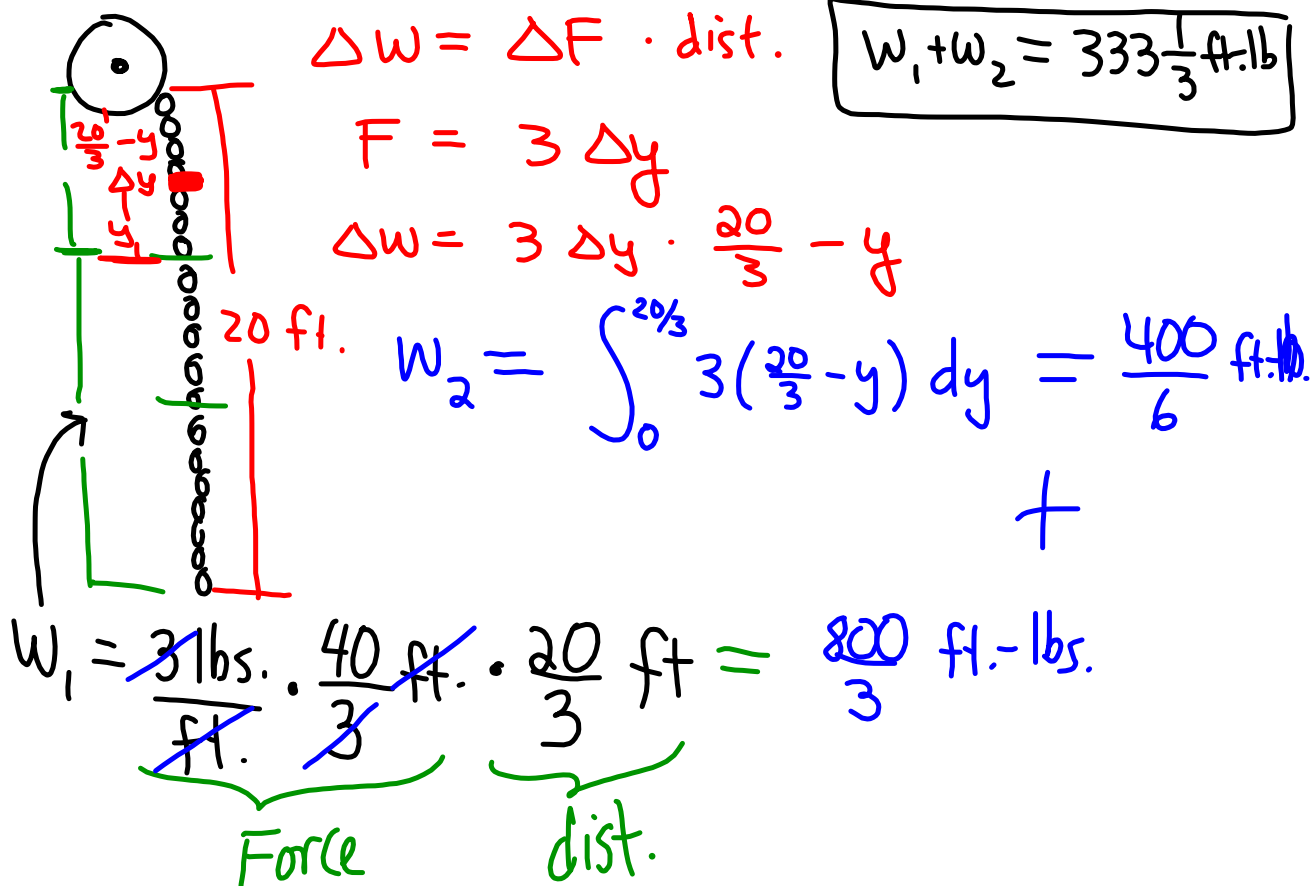 ΔW = ΔF · dist.
W₁+W₂ = 333 1/3 ft.lb
F = 3 Δy
20/3 - y
Δy
y
ΔW = 3 Δy · 20/3 - y
20 ft.
W₂ = ∫₀^20/3 3(20/3 - y) dy = 400/6 ft.-lb.
+
W₁ = 3 lbs./ft. · 40/3 ft. · 20/3 ft = 800/3 ft.-lbs.
Force
dist.